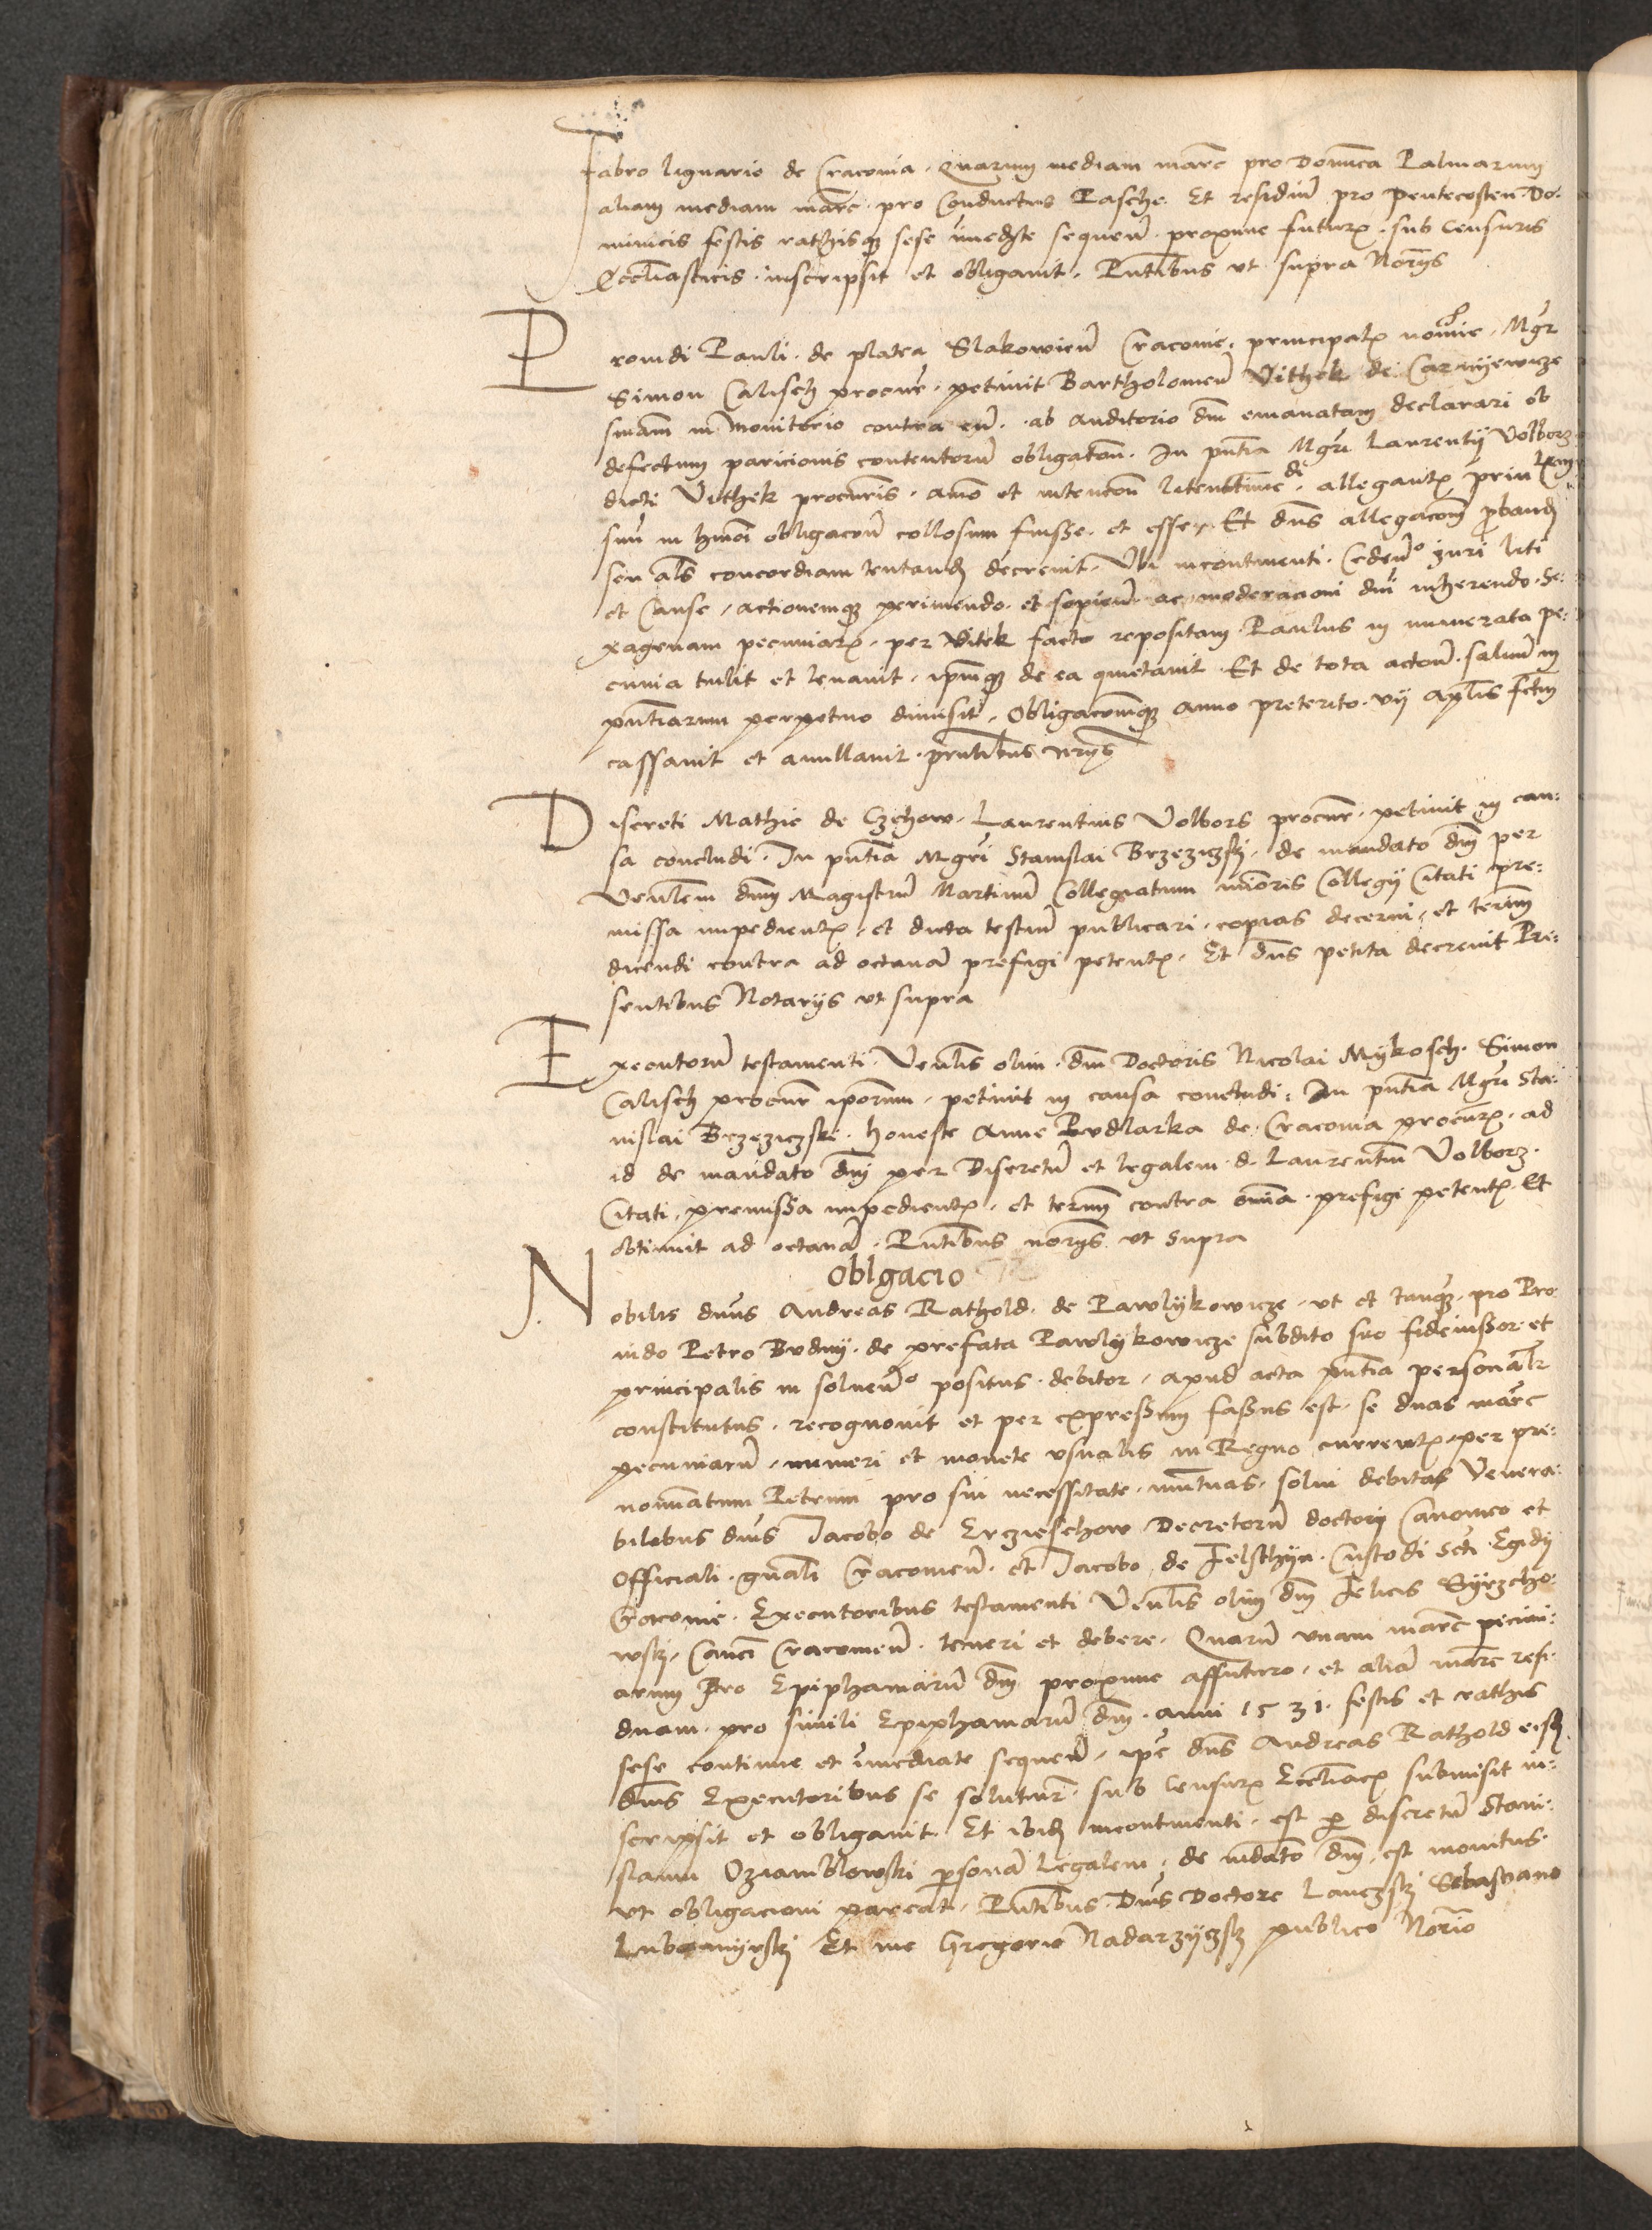 Fabro lignario de Cracovia . Quarum mediam marc̄ pro Domīca Palmarum
aliam mediam marc̄ . pro Conductus Pasche . Et residuū pro Pentecosten Do-
minicis festis rathisq̨ sese īmediāte sequeñ . proxime futuꝝ . sub Censuris
Ecclīasticis . inscripsit et obligavit . Pntibus ut supra Norijs
Providi Pauli . de platea Slakowieñ Cracovie . principalꝝ nomīe . Mgr̄
Simon Calisch procur̄ . petivit Bartholomeū Vithek de Carnijewicze
snīam in Monitorio contra eū . ab auditorio dnī emanatam declarari ob
defectum paricionis contentorū obligatoñ . In pn̄tia Mgrī Laurentij Volborz
dicti Vithek procuris . aīmo et intencoñ liten . allegantꝝ prin
suū in hmōi obligacoñ collosum fuisse . et esse . Et dn̄s allegacom̄ probandꝫ
seu alīs concordiam tentandꝫ decrevit . Ubi incontinenti . Cedeñº juri liti
et Cause , actionemq̨ perimendo . et sopieñ ac moderacioni dnī inherendo . Se-
xagenam pecuniaꝝ . per Vitek facto repositam . Paulus in numerata pe-
cunia tulit et levavit , ipmq̨ de ea quietavit . Et de tota actoñ . salvum
pn̄tiarum perpetuo dimisit , Obligacom̄q̨ anno preterito . vij aplīs fctm̄
cassavit et anullavit . pn̄tibus nrijs
Discreti Mathie de Czchow . Laurentius Volbors procur̄ . petivit in cau-
sa concludi . In pn̄tia Mgrī Stanislai Brzeziczskj . de mandato dnī per
Venlem dnm̄ Magistrū Martinū Collegiatum mīoris Collegij Citati pre-
missa impedientꝝ , et dicta testiū publicari , copias decerni , et termīn
dicendi contra ad octavā prefigi petentꝝ . Et dn̄s petita decrevit Pre-
sentibus Notarijs ut supra
Executorū testamenti . Venlīs olim . dnī Doctoris Nicolai Mykosch . Simon
Calisch procur̄ ipōrum , petivit in causa concludi . In pn̄tia Mgrī Sta-
nislai Brzeziczski . honeste Anne Budlarka de Cracovia procurꝝ . ad
id de mandato dnī per Discretū et legalem . d . Laurentiū Volborz .
Citati , premissa impedientꝝ , et termīn contra omīa . prefigi petentꝝ . Et
obtinuit ad octavā . Pntibus norijs ut supra
Oblgacio
Nobilis dn̄us Andreas Rathold . de Pawlykowicze , ut et tanq̨ . pro Pro-
vido Petro Budny . de prefata Pawlykowicze subdito suo fideiussor et
principalis in solveñº positus . debitor , apud acta pn̄tia personalr̄
constitutus . recognovit et per expressum fassus est . se duas marc̄
pecuniarū , numeri et monete usualis in Regno currentꝝ . per pre-
nominatum Petrum pro sui necessitate . mutuas . solvi debitas Venera-
bilibus dnīs Jacobo de Erczieschow Decretorū doctori Canonico et
Officiali . gnāli Cracovieñ . et Jacobo de Felsthijn . Custodi Scti Egidij
Cracovie . Executoribus testamenti Venlīs olim dnī Felicis Syrzcho-
wskj , Canc̄i Cracovieñ . teneri et debere . Quarū unam marc̄ pecuni-
arum Pro Epiphaniarū dnī proxime affuturo , et aliā marc̄ resi-
duam . pro simili Epiphaniarū dnī . anni 1531 . festis et rathis
sese continue et īmediate sequeñ , ip̄e dn̄s Andreas Rathold eisdꝫ
dnīs Executoribus se soluturū . sub Censuꝝ Ecclīacꝝ submisit in-
scripsit et obligavit . Et ibidꝫ incontinenti . est per discretū Stani-
slaum Oziamblowski personā legalem , de mdāto dnī . est monitus .
ut obligacioni pareat . Pntibus . Dn̄is Doctore Lanczskj Sebastiano
Lubomyrskj Et me Gregorio Nadarzyczskj publico Norīo